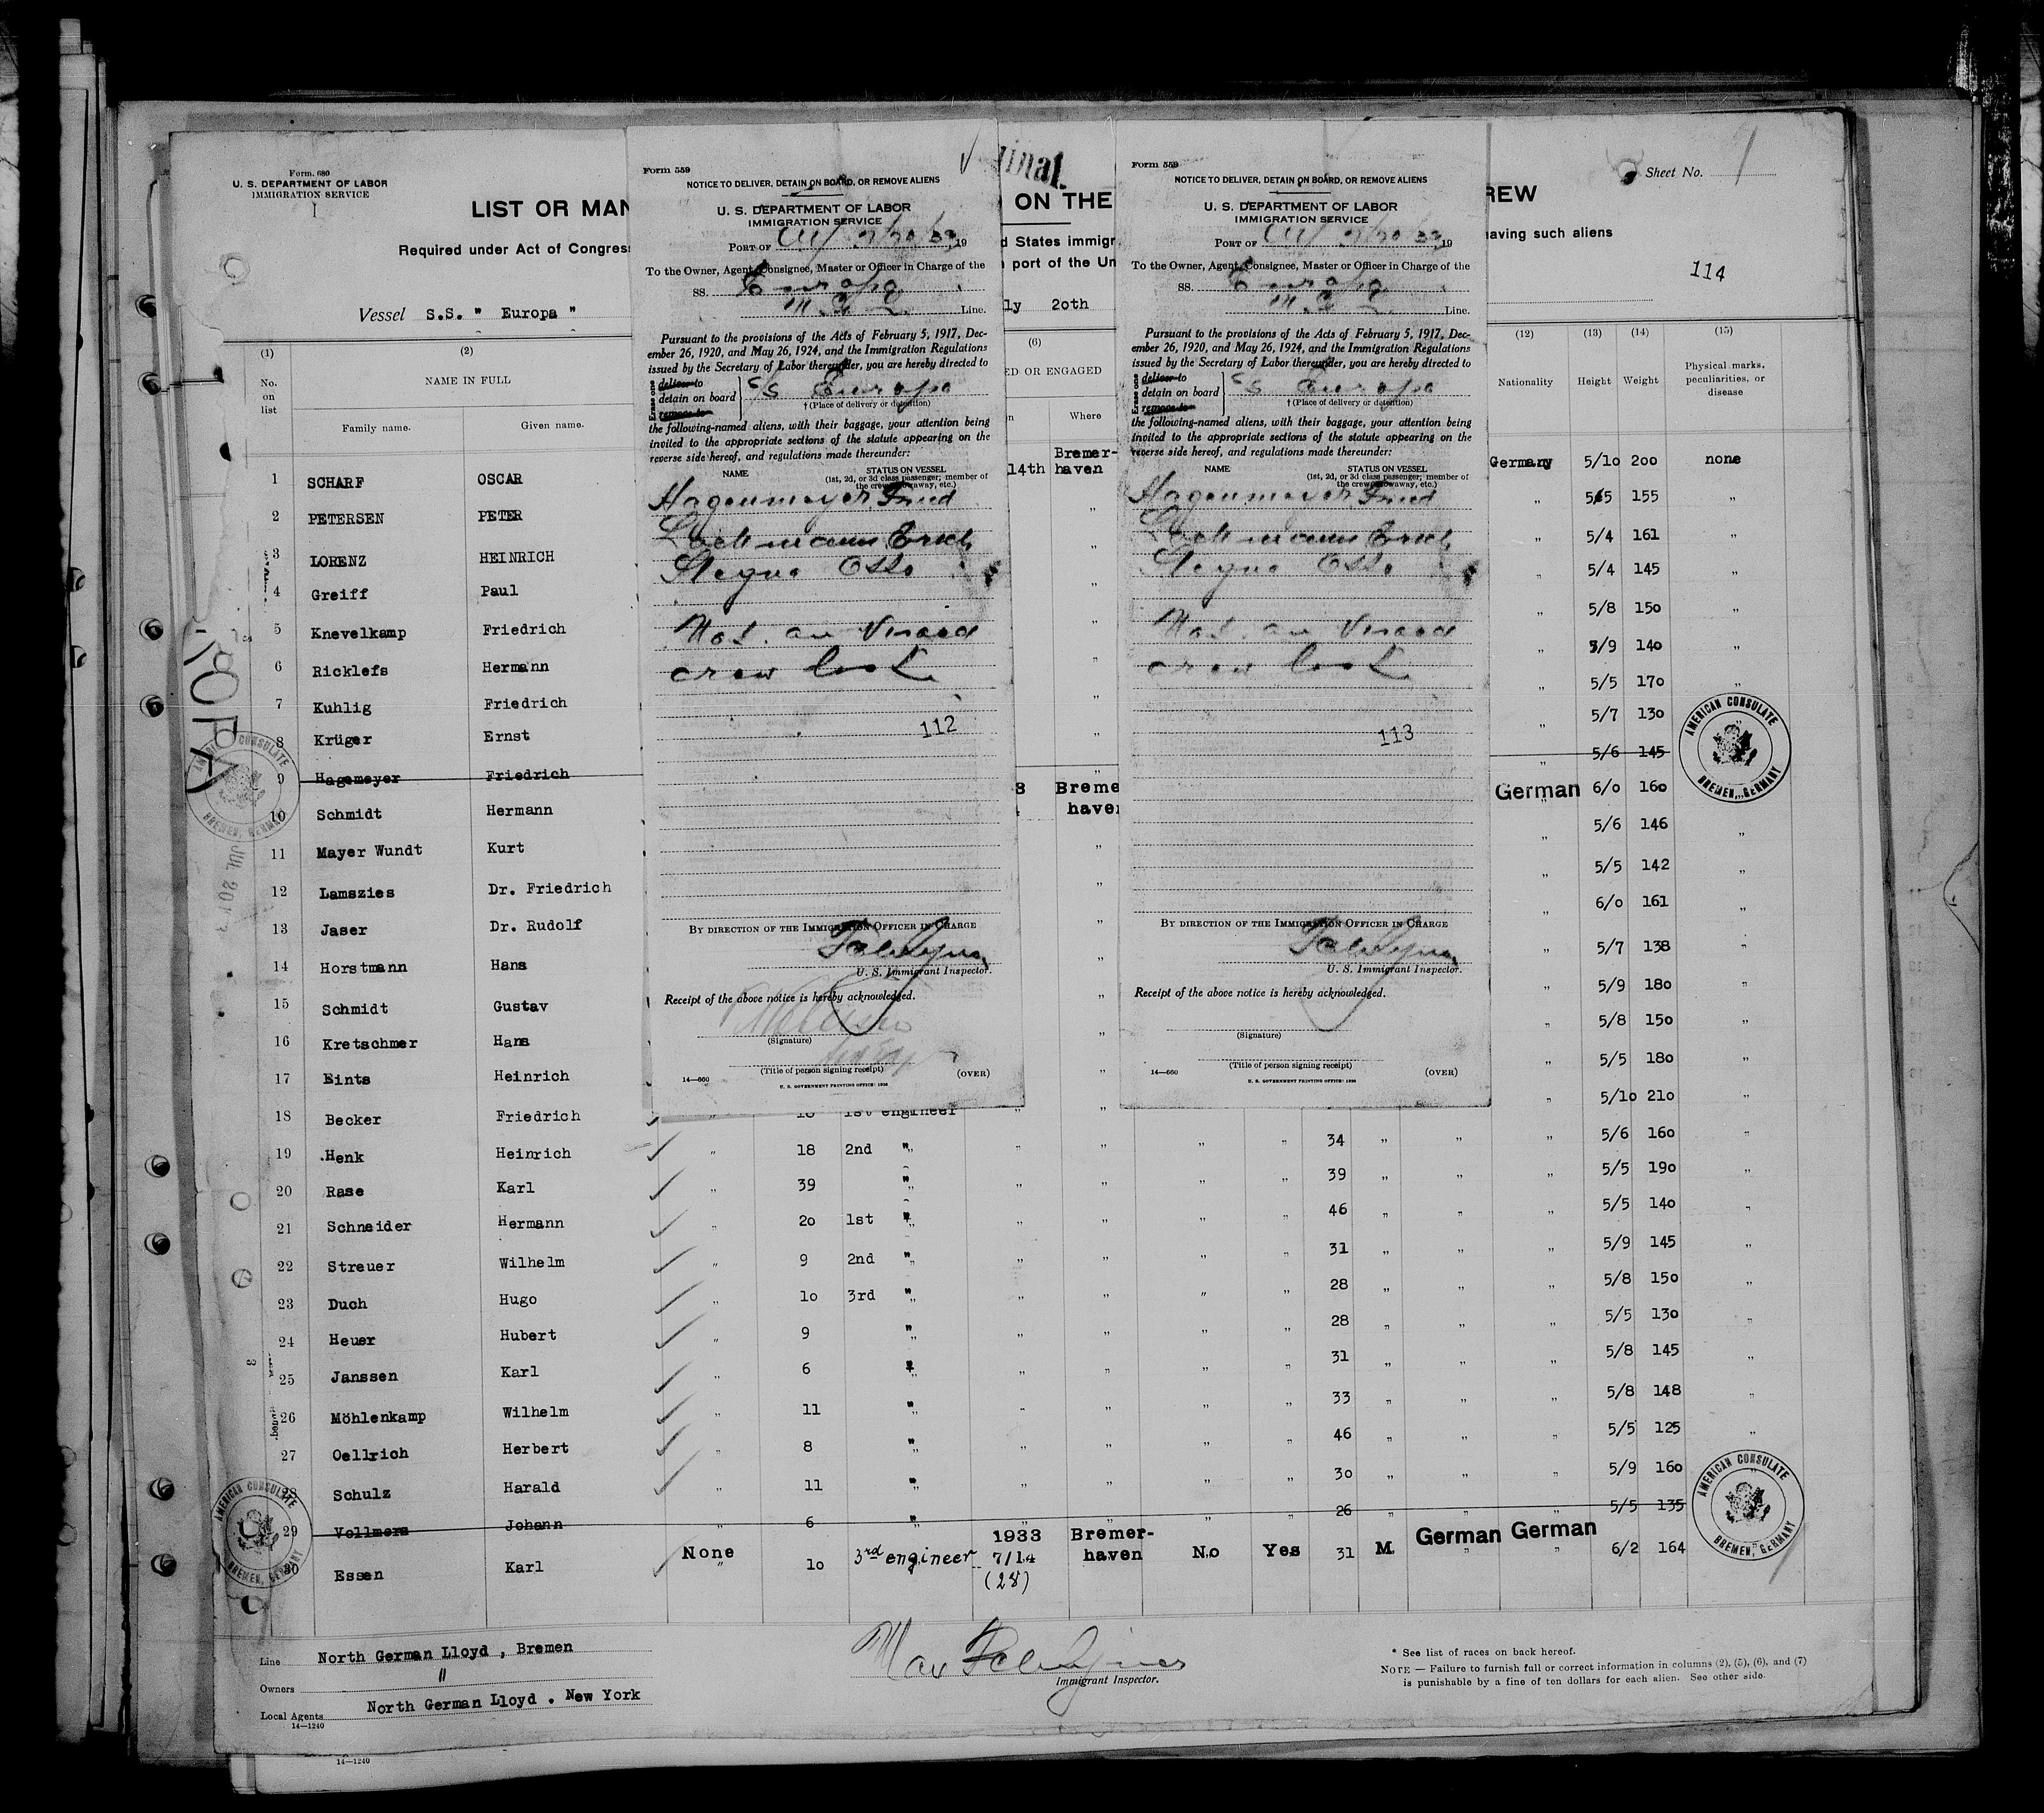 Form. 680
U. S. DEPARTMENT OF LABOR
IMMIGRATION SERVICE
LIST OR MAN
Required under Act of Congress
Vessel S.S. " Europa "
(1)
(2)
No.
on
list
NAME IN FULL
Family name.
Given name.
1 SCHARF OSCAR
2 PETERSEN PETER
3 LORENZ HEINRICH
4 Greiff Paul
5 Knevelkamp Friedrich
6 Ricklefs Hermann
7 Kuhlig Friedrich
8 Krüger Ernst
9 Hagemeyer Friedrich
10 Schmidt Hermann
11 Mayer Wundt Kurt
12 Lamszies Dr. Friedrich
13 Jaser Dr. Rudolf
14 Horstmann Hans
15 Schmidt Gustav
16 Kretschmer Hans
17 Eints Heinrich
18 Becker Friedrich
Form 559
NOTICE TO DELIVER, DETAIN ON BOARD, OR REMOVE ALIENS
U. S. DEPARTMENT OF LABOR
IMMIGRATION SERVICE
PORT OF 19
To the Owner, Agent, Consignee, Master or Officer in Charge of the
SS. Europa
Line.
Pursuant to the provisions of the Acts of February 5, 1917, Dec-
ember 26, 1920, and May 26, 1924, and the Immigration Regulations
issued by the Secretary of Labor thereunder, you are hereby directed to
Erase one
deliver to
detain on board
remove to
S/S Europa
† (Place of delivery or detention)
the following-named aliens, with their baggage, your attention being
invited to the appropriate sections of the statute appearing on the
reverse side hereof, and regulations made thereunder:
NAME
STATUS ON VESSEL
(1st, 2d, or 3d class passenger; member of
the crew, stowaway, etc.)
Hagenmeyer Fried
Erich
Otto
Not on Visaed
crew list
112
BY DIRECTION OF THE IMMIGRATION OFFICER IN CHARGE
U. S. Immigrant Inspector.
Receipt of the above notice is hereby acknowledged.
(Signature)
(Title of person signing receipt)
14—660
(OVER)
U. S. GOVERNMENT PRINTING OFFICE
inal.
ON THE
d States immigr
port of the Un
ly 20th
(6)
ED OR ENGAGED
Where
14th Bremer-
haven
8 Breme
haven
Form 559
NOTICE TO DELIVER, DETAIN ON BOARD, OR REMOVE ALIENS
U. S. DEPARTMENT OF LABOR
IMMIGRATION SERVICE
PORT OF 19
To the Owner, Agent, Consignee, Master or Officer in Charge of the
SS. Europa
Line.
Pursuant to the provisions of the Acts of February 5, 1917, Dec-
ember 26, 1920, and May 26, 1924, and the Immigration Regulations
issued by the Secretary of Labor thereunder, you are hereby directed to
Erase one
deliver to
detain on board
remove to
S/S Europa
† (Place of delivery or detention)
the following-named aliens, with their baggage, your attention being
invited to the appropriate sections of the statute appearing on the
reverse side hereof, and regulations made thereunder:
NAME
STATUS ON VESSEL
(1st, 2d, or 3d class passenger; member of
the crew, stowaway, etc.)
Hagenmeyer Fried
Erich
Otto
Not on Visaed
crew list
113
BY DIRECTION OF THE IMMIGRATION OFFICER IN CHARGE
U. S. Immigrant Inspector.
Receipt of the above notice is hereby acknowledged.
(Signature)
(Title of person signing receipt)
14—660
(OVER)
U. S. GOVERNMENT PRINTING OFFICE
REW
Sheet No. 1
aving such aliens
114
(12) (13) (14) (15)
Nationality Height Weight
Physical marks,
peculiarities, or
disease
Germany 5/10 200 none
" 5/5 155 "
" 5/4 161 "
" 5/4 145 "
" 5/8 150 "
" 5/9 140 "
" 5/5 170 "
" 5/7 130 "
" 5/6 145
German 6/0 160
" 5/6 146 "
" 5/5 142 "
" 6/0 161 "
" 5/7 138 "
" 5/9 180 "
" 5/8 150 "
" 5/5 180 "
" 5/10 210 "
1st engineer
19 Henk Heinrich " 18 2nd " " " " " 34 " " " 5/6 160 "
20 Rase Karl " 39 " " " " " 39 " " " 5/5 190 "
21 Schneider Hermann " 20 1st " " " " " 46 " " " 5/5 140 "
22 Streuer Wilhelm " 9 2nd " " " " " 31 " " " 5/9 145 "
23 Duch Hugo " 10 3rd " " " " " 28 " " " 5/8 150 "
24 Heuer Hubert " 9 " " " " " 28 " " " 5/5 130 "
25 Janssen Karl " 6 " " " " " 31 " " " 5/8 145 "
26 Möhlenkamp Wilhelm " 11 " " " " " 33 " " " 5/8 148 "
27 Oellrich Herbert " 8 " " " " " 46 " " " 5/5 125 "
28 Schulz Harald " 11 " " " " " 30 " " " 5/9 160 "
29 Vollmers Johann " 6 " " " " " 26 " " " 5/5 135
30 Essen Karl None 10 3rd engineer 1933 7/14 (28) Bremer-haven No Yes 31 M. German German 6/2 164
AMERICAN CONSULATE
BREMEN, GERMANY
AMERICAN CONSULATE
BREMEN, GERMANY
AMERICAN CONSULATE
BREMEN, GERMANY
AMERICAN CONSULATE
BREMEN, GERMANY
Line North German Lloyd , Bremen
Owners "
Local Agents North German Lloyd . New York
14—1240
Max
Immigrant Inspector.
* See list of races on back hereof.
NOTE — Failure to furnish full or correct information in columns (2), (5), (6), and (7)
is punishable by a fine of ten dollars for each alien. See other side.
14—1240